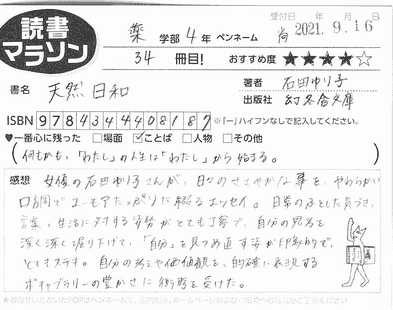 読書
マラソン
受付日 年 月 日
2021. 9. 16
薬 学部 4 年 ペンネーム 尚
34 冊目! おすすめ度 ★★★★☆
書名 天然日和
著者 石田ゆり子
出版社 幻冬舎文庫
ISBN 9784344408187 ※「-」ハイフンなしで記入してください。
♥一番心に残った □場面 ☑ことば □人物 □その他
(何もかも、「わたし」の人生は「わたし」から始まる。)
感想 女優の石田ゆり子さんが、日々のささやかな事を、やわらかい
口調で、ユーモアたっぷりに綴るエッセイ。日常のふとした気づき、
言葉、生活に対する姿勢がとても丁寧で、自分の内面を
深く深く掘り下げて、「自分」を見つめ直す姿が印象的で、
とてもステキ。自分の考えや価値観を、的確に表現する
ボキャブラリーの豊かさに衝撃を受けた。